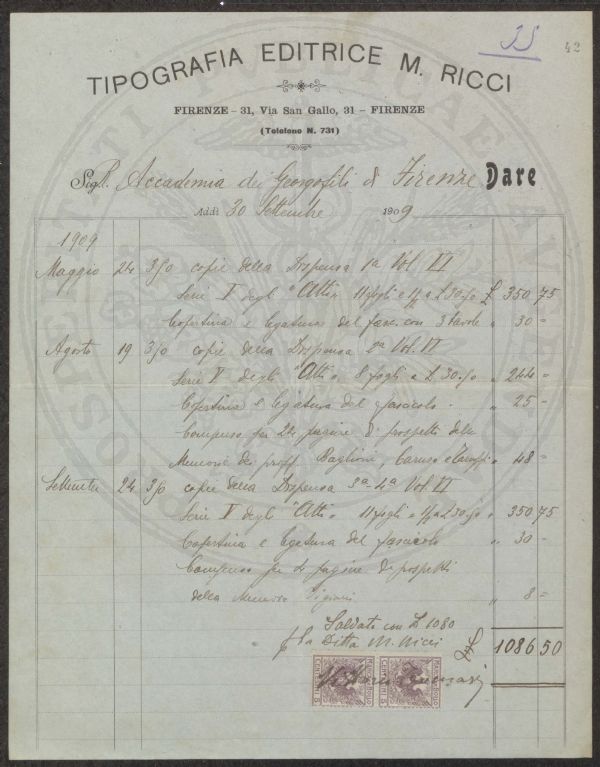 35
42
TIPOGRAFIA EDITRICE M. RICCI
FIRENZE - 31, Via San Gallo, 31 - FIRENZE
(Telefono N. 731)
Sig. R. Accademia dei Georgofili di Firenze Dare
Addì 30 Settembre 1909
1909
Maggio 24 350 copie della Dispensa 1a Vol. VI
Serie V degli "Atti" 11 fogli e 1/2 a L 30.50 £ 350,75
Copertina e legatura del fasc. con 3 tavole " 30 -
Agosto 19 350 copie della Dispensa 2a Vol. VI
Serie V degli "Atti" 8 fogli a L 30.50 " 244 -
Copertina e legatura del fascicolo " 25 -
Compenso per 24 pagine di prospetti delle
Memorie dei proff. Baglioni, Caruso e " 48 -
Settembre 24 350 copie della Dispensa 3a-4a Vol. VI
Serie V degli "Atti" 11 fogli e 1/2 a L 30.50 " 350,75
Copertina e legatura del fascicolo " 30 -
Compenso per 4 pagine di prospetti
della Memoria " 8 -
Saldato con L 1080
p la Ditta M. Ricci £ 1086 50
MARCA DA BOLLO
CENTESIMI 5
MARCA DA BOLLO
CENTESIMI 5